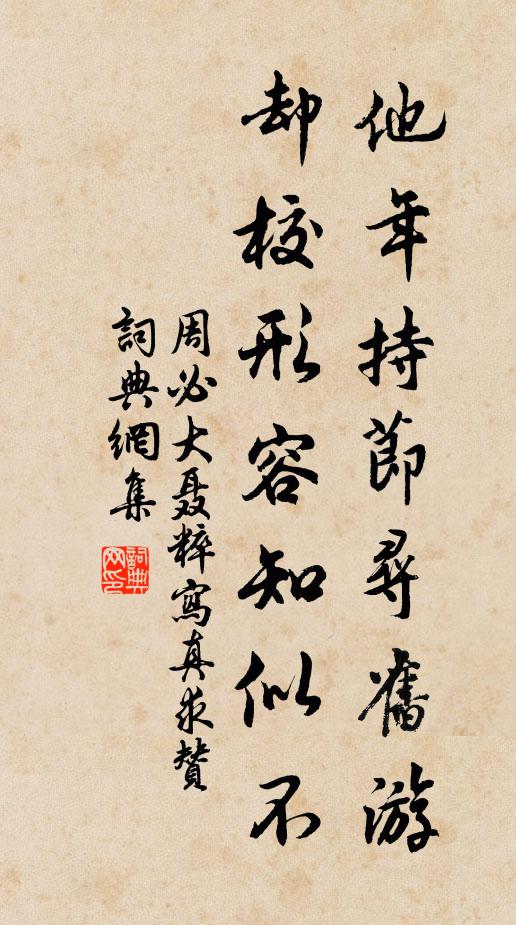 他年持節尋舊游
却校形容知似不
周必大聶粹寫真求贊
詞典網集
詞典网印